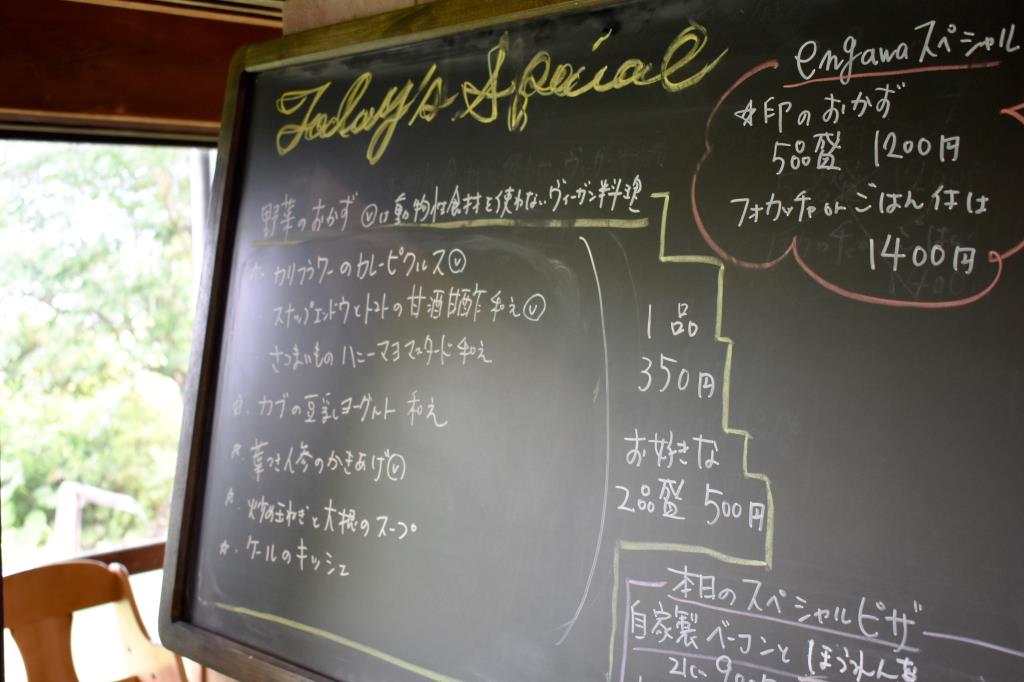 Today's Special
野菜のおかず Ⓥは動物性食材を使わないヴィーガン料理
☆・カリフラワーのカレーピクルスⓋ
スナップエンドウとトマトの甘酒甘酢和えⓋ
さつまいものハニーマヨマスタード和え
☆・カブの豆乳ヨーグルト和え
☆・葉つき人参のかきあげⓋ
☆・炒め玉ねぎと大根のスープ
☆・ケールのキッシュ
1品
350円
お好きな
2品盛 500円
engawaスペシャル
☆印のおかず
5品盛 1200円
フォカッチャorごはん付は
1400円
本日のスペシャルピザ
自家製ベーコンとほうれん草
21cm